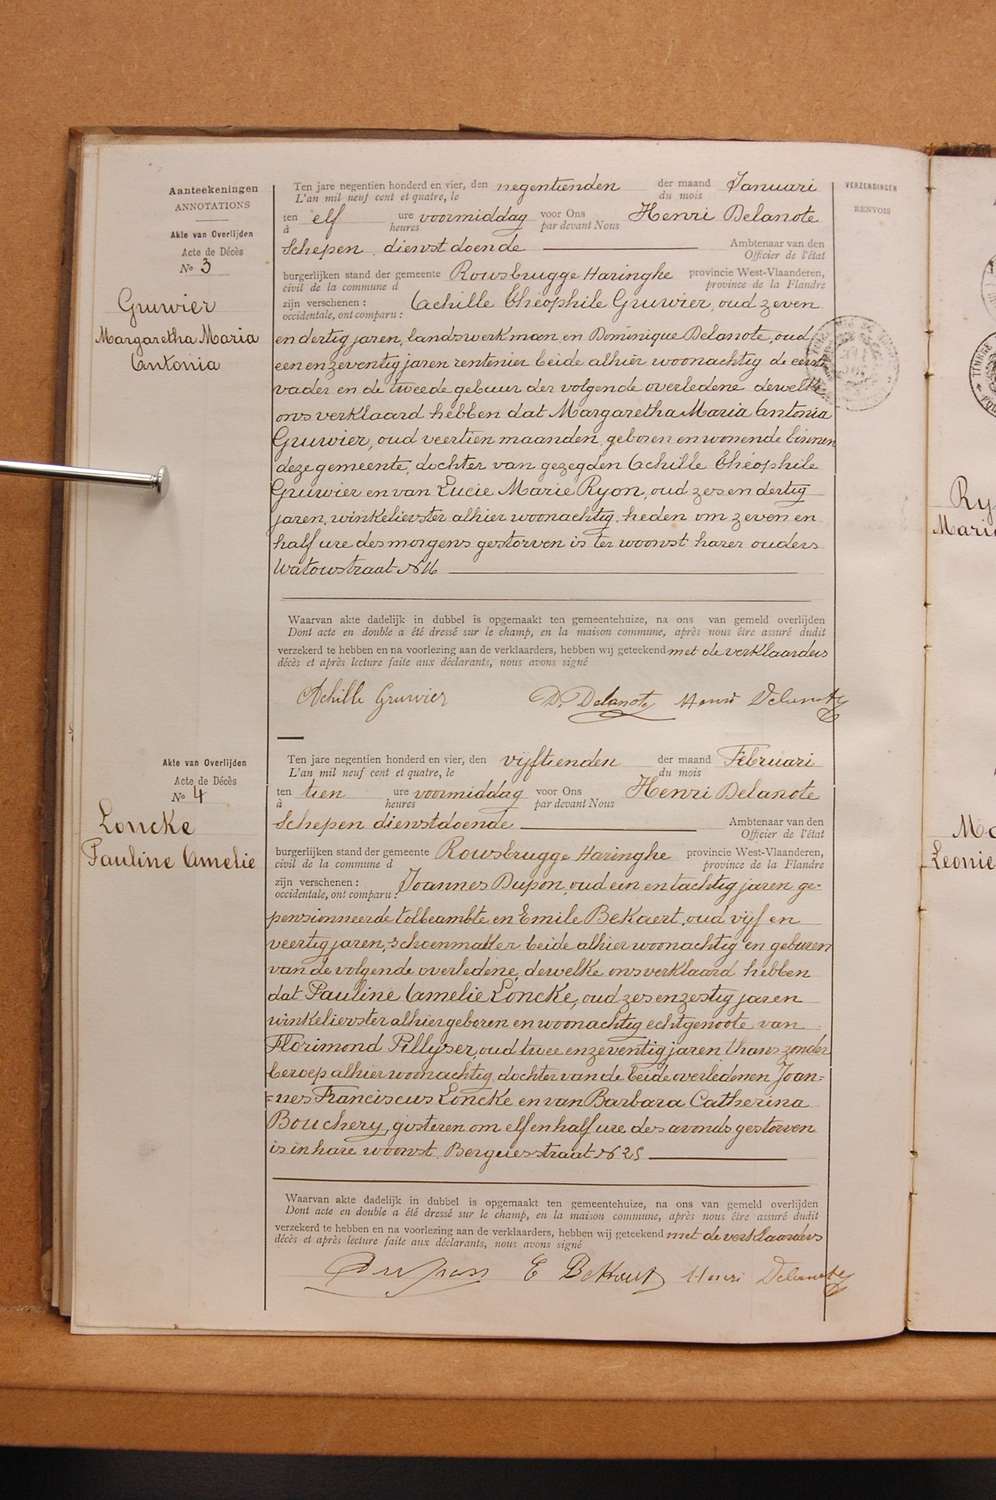 Aanteekeningen
ANNOTATIONS
Akte van Overlijden
Acte de Décès
No 3
Gruwier
Margaretha Maria
Antonia
Ten jare negentien honderd en vier, den negentienden der maand Januari
L'an mil neuf cent et quatre, le du mois
ten elf ure voormiddag voor Ons Henri Delanote
à heures par devant Nous
Schepen dienstdoende Ambtenaar van den
Officier de l'état
burgerlijken stand der gemeente Rousbrugge Haringhe provincie West-Vlaanderen,
civil de la commune d province de la Flandre
zijn verschenen : Achille Théophile Gruwier, oud zeven
occidentale, ont comparu :
en dertig jaren, landswerkman en Dominique Delanote, oud
een en zeventig jaren rentenier beide alhier woonachtig de eerste
vader en de tweede gebuur der volgende overledene dewelke
ons verklaard hebben dat Margaretha Maria Antonia
Gruwier, oud veertien maanden, geboren en wonende binnen
deze gemeente, dochter van gezegden Achille Théophile
Gruwier en van Lucie Marie Ryon, oud zes en dertig
jaren, winkelierster alhier woonachtig, heden om zeven en
half ure des morgens gestorven is ter woonst harer ouders
Watoustraat No 16
Waarvan akte dadelijk in dubbel is opgemaakt ten gemeentehuize, na ons van gemeld overlijden
Dont acte en double a été dressé sur le champ, en la maison commune, après nous être assuré dudit
verzekerd te hebben en na voorlezing aan de verklaarders, hebben wij geteekend met de verklaarders
décès et après lecture faite aux déclarants, nous avons signé
Achille Gruwier D. Delanote Henri Delanote
Akte van Overlijden
Acte de Décès
No 4
Loncke
Pauline Amelie
Ten jare negentien honderd en vier, den vijftienden der maand Februari
L'an mil neuf cent et quatre, le du mois
ten tien ure voormiddag voor Ons Henri Delanote
à heures par devant Nous
Schepen dienstdoende Ambtenaar van den
Officier de l'état
burgerlijken stand der gemeente Rousbrugge Haringhe provincie West-Vlaanderen,
civil de la commune d province de la Flandre
zijn verschenen : Joannes Dupon, oud een en tachtig jaren ge-
occidentale, ont comparu :
pensionneerde tolbeambte en Emile BeKaert, oud vijf en
veertig jaren, schoenmaker beide alhier woonachtig en geburen
van de volgende overledene, dewelke ons verklaard hebben
dat Pauline Amelie Loncke, oud zes en zestig jaren
winkelierster alhier geboren en woonachtig echtgenoote van
Florimond Pillyser, oud twee en zeventig jaren thans zonder
beroep alhier woonachtig, dochter van de beide overledenen Joan=
=nes Franciscus Loncke en van Barbara Catherina
Bouchery, gisteren om elf en half ure des avonds gestorven
is in hare woonst Berguesstraat No 25
Waarvan akte dadelijk in dubbel is opgemaakt ten gemeentehuize, na ons van gemeld overlijden
Dont acte en double a été dressé sur le champ, en la maison commune, après nous être assuré dudit
verzekerd te hebben en na voorlezing aan de verklaarders, hebben wij geteekend met de verklaarders
décès et après lecture faite aux déclarants, nous avons signé
Dupon E BeKaert Henri Delanote
VERZENDINGEN
RENVOIS
Ry
Maria
Leonie